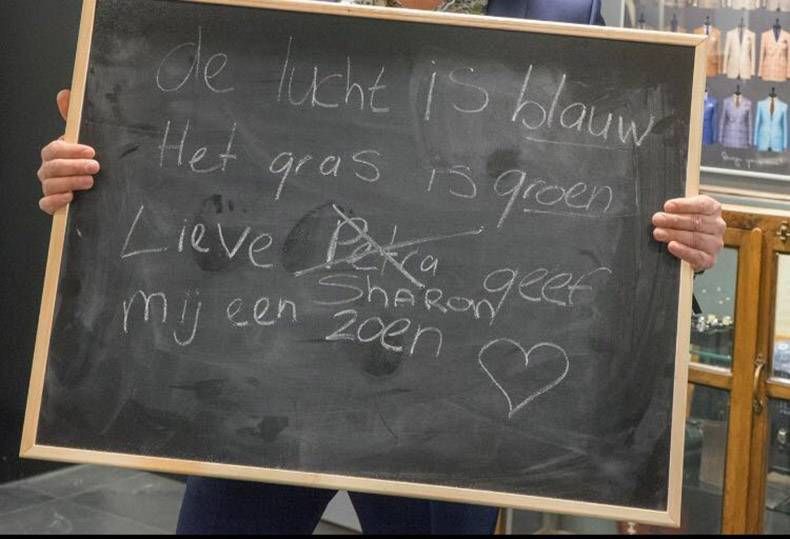 de lucht is blauw
Het gras is groen
Lieve Petra geef
Sharon
mij een zoen